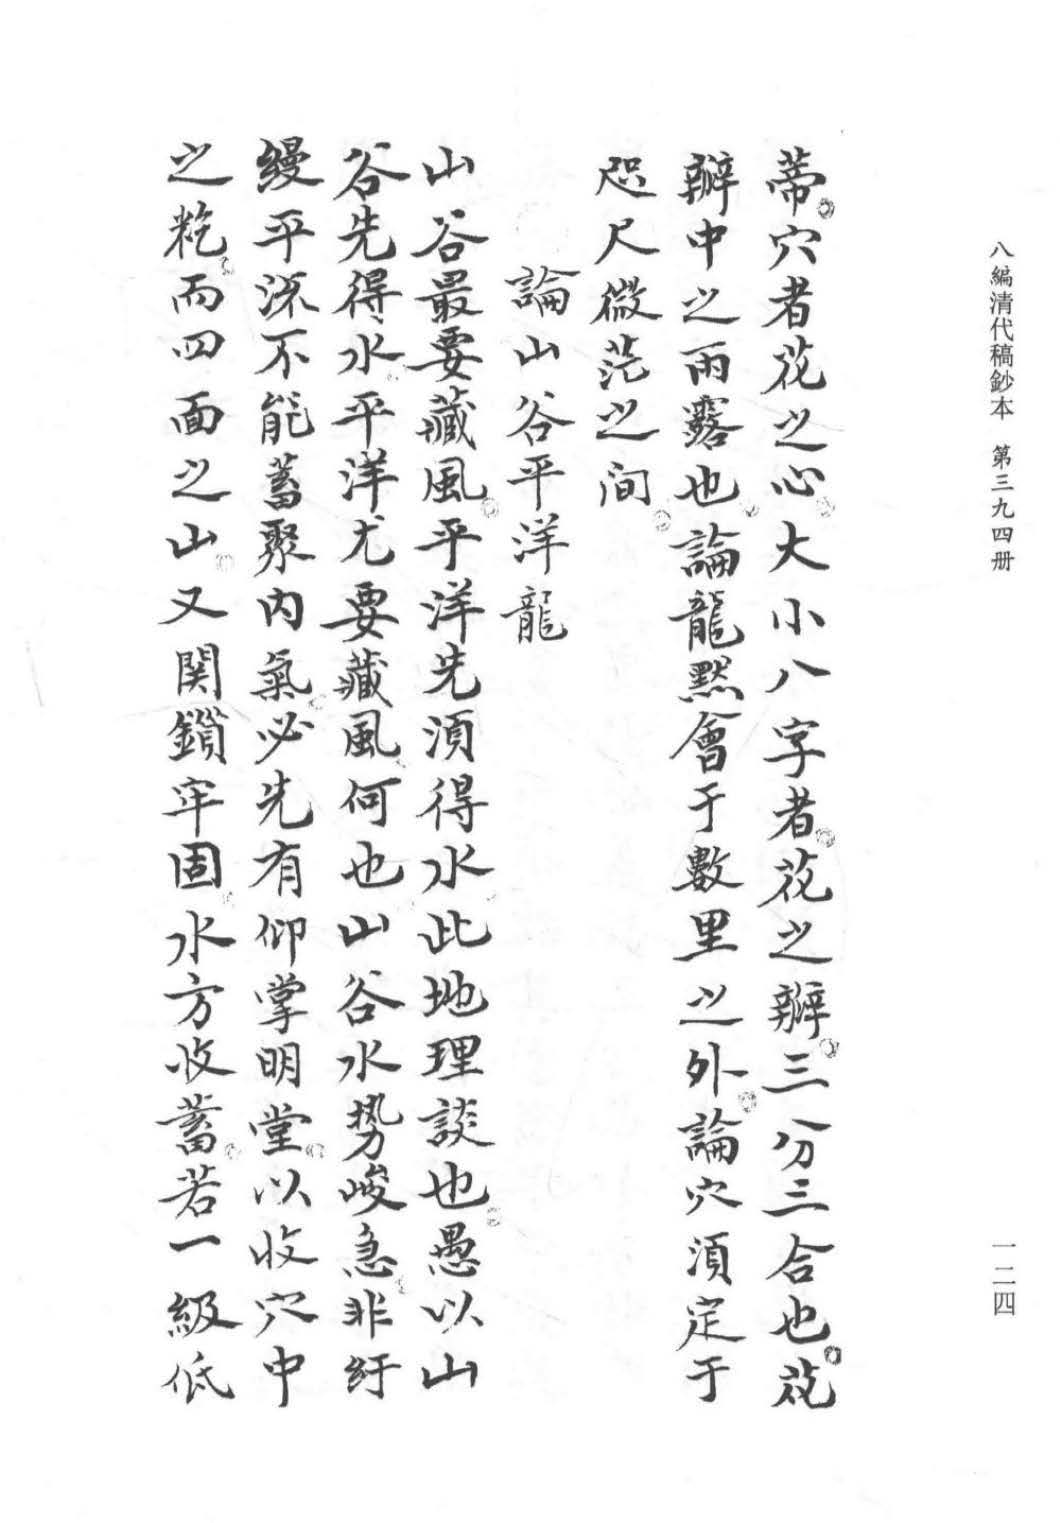 八編清代稿鈔本　第三九四册
蒂穴者花之心大小八字者花之辦三分三合也花
辦中之雨露也論龍黙會于數里之外論穴湏定于
咫尺微茫之间
論山谷平洋龍
山谷最要藏風平洋先湏得水此地理談也愚以山
谷先得水平洋尤要藏風何也山谷水势峻急非紆
縵平流不能蓄聚内氣必先有仰掌明堂以收穴中
之乾而四面之山又関鎖牢固水方收蓄若一級低
一二四